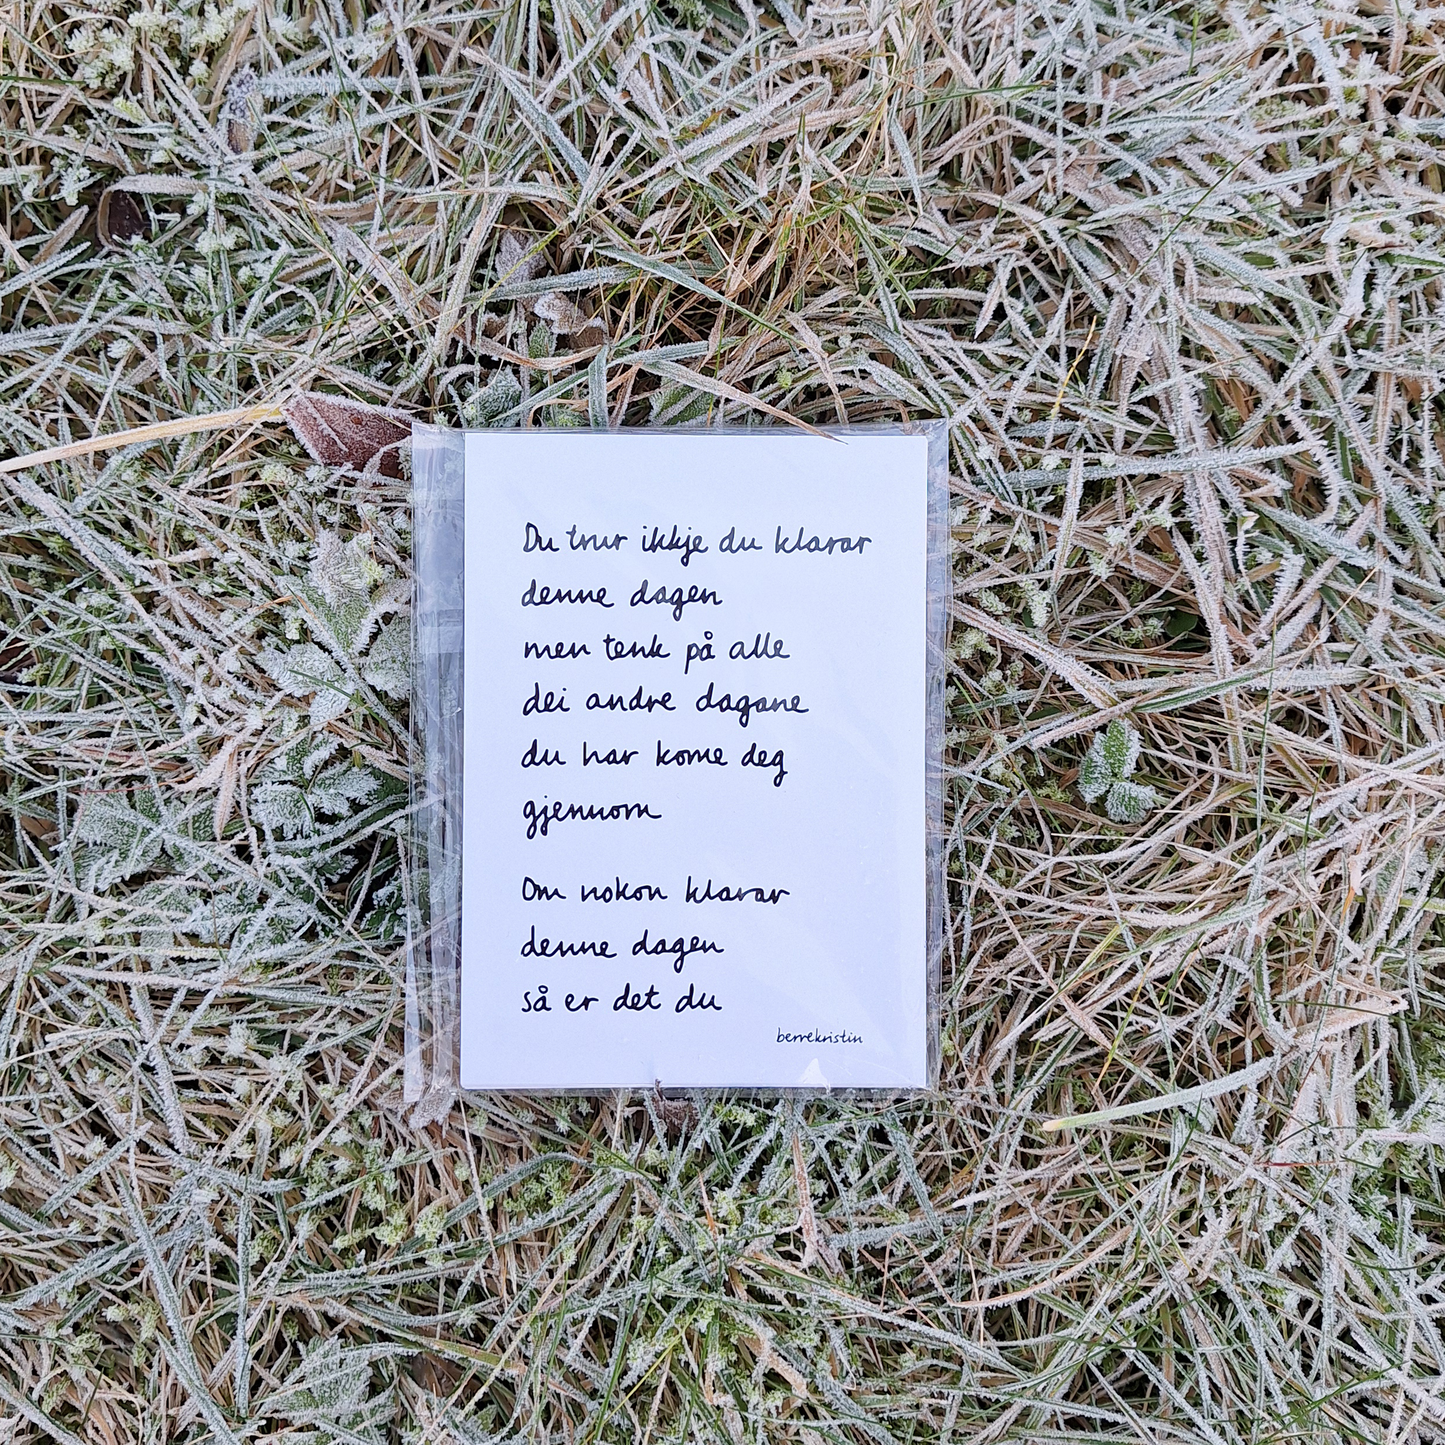 Du trur ikkje du klarar
denne dagen
men tenk på alle
dei andre dagane
du har kome deg
gjennom
Om nokon klarar
denne dagen
så er det du
berrekristin